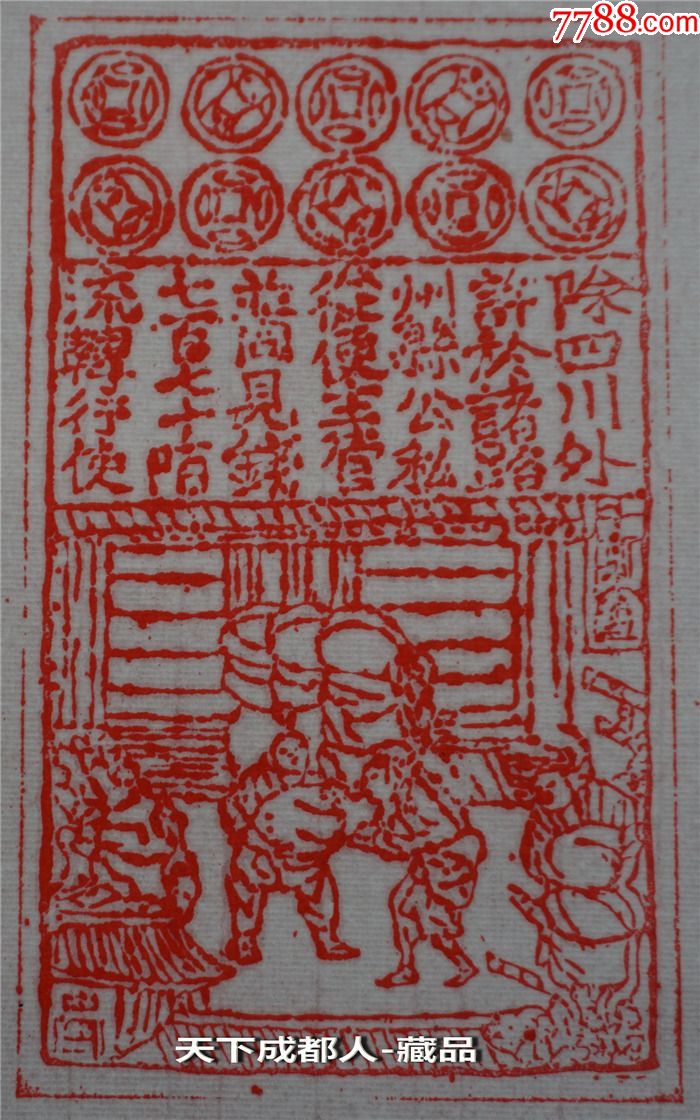 7788.com
除四川外
許於諸路
州縣公私
從便主管
並同見錢
七百七十陌
流轉行使
天下成都人-藏品